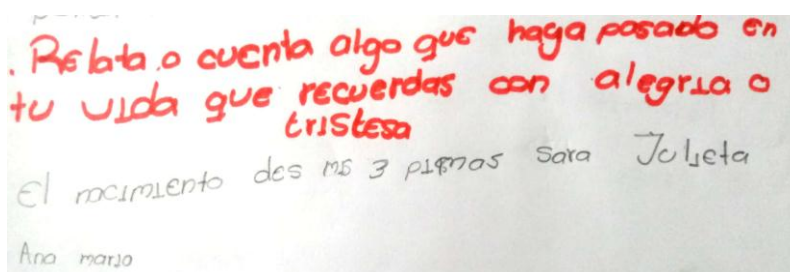 . Relata o cuenta algo que haga pasado en
tu vida que recuerdas con alegria o
tristesa
El nacimiento des mis 3 Sara Julieta
Ana maria